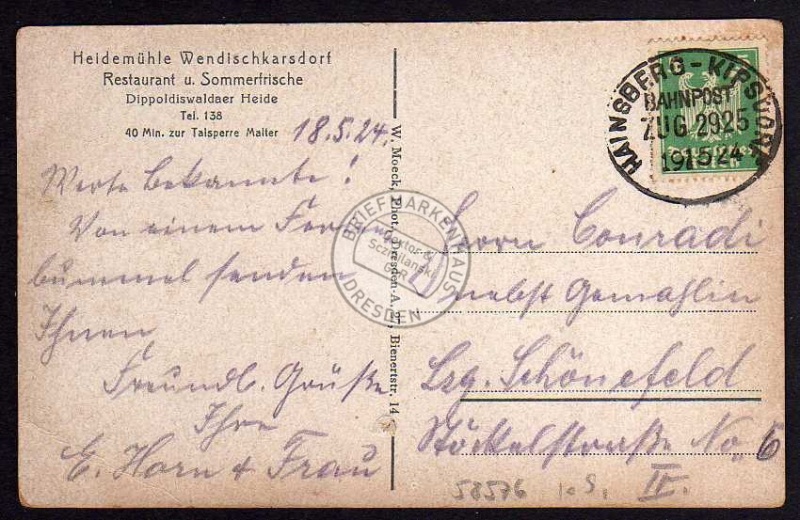 Heidemühle Wendischkarsdorf
Restaurant u. Sommerfrische
Dippoldiswaldaer Heide
Tel. 138
40 Min. zur Talsperre Malter
18.5.24.
Werte Bekannte!
Von einem
bummel senden
Ihnen
Freundl. Grüße
Ihre
E. Horn & Frau
W. Moeck, Phot., Dresden-A. 27, Bienertstr. 14
HAINGSBERG-KIPSDORF
BAHNPOST
ZUG 2925
19.5.24
BRIEFMARKENHAUS
Doktor &
DRESDEN
Herrn Conradi
nebst Gemahlin
Lzg. Schönefeld
Stöckelstraße No. 6
II.
58576